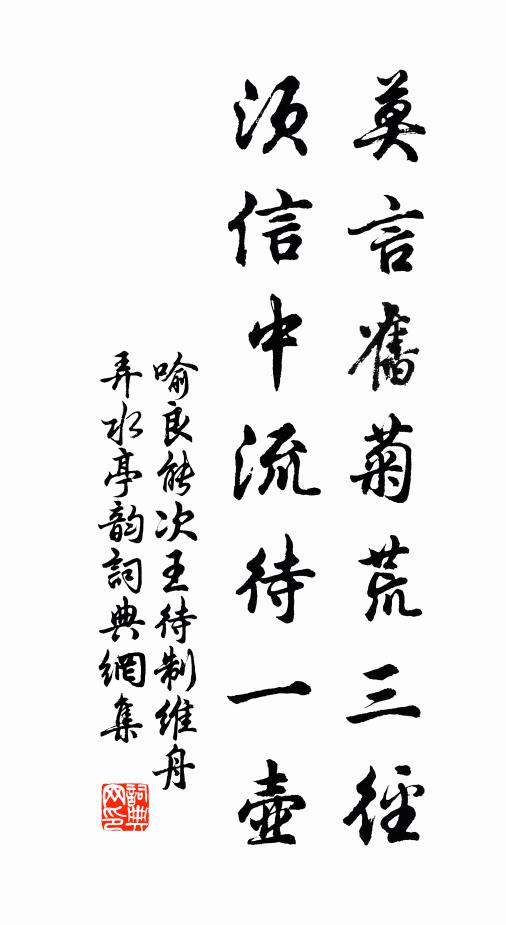 莫言舊菊荒三徑
須信中流待一壺
喻良能次王待制維舟
弄水亭韵詞典網集
詞典网印